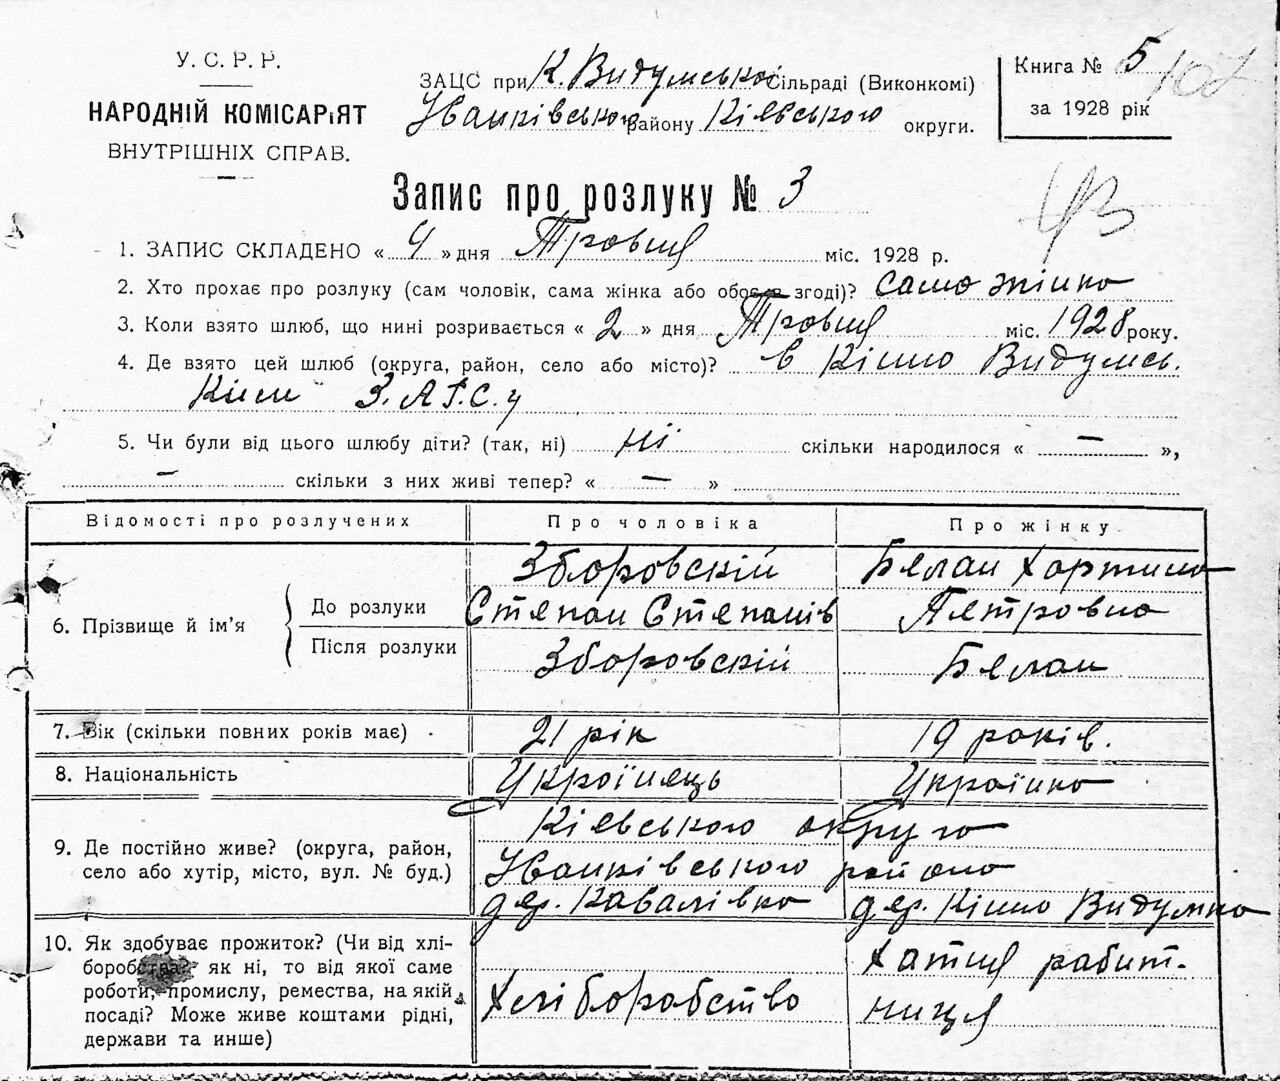 У. С. Р. Р.
НАРОДНІЙ КОМІСАРІЯТ
ВНУТРІШНІХ СПРАВ.
ЗАЦС при К. Видумській Сільраді (Виконкомі)
Иванківського району Кієвського округи.
Книга № 5
за 1928 рік
Запис про розлуку № 3
1. ЗАПИС СКЛАДЕНО « 4 » дня Травня міс. 1928 р.
2. Хто прохає про розлуку (сам чоловік, сама жінка або обоє в згоді)? сама жінка
3. Коли взято шлюб, що нині розривається « 2 » дня Травня міс. 1928 року.
4. Де взято цей шлюб (округа, район, село або місто)? в Кінно Видумсь.
З.А.Г.С.у
5. Чи були від цього шлюбу діти? (так, ні) ні скільки народилося « — »,
— скільки з них живі тепер? « — »
Відомості про розлучених Про чоловіка Про жінку
6. Прізвище й ім'я
До розлуки Зборовскій Белан Хартина
Степан Степанів Петровна
Після розлуки Зборовскій Белан
7. Вік (скільки повних років має) 21 рік 19 років.
8. Національність Українець Українка
9. Де постійно живе? (округа, район, село або хутір, місто, вул. № буд.)
Кієвського округа
Иванківського района
дер. Кавалівка дер. Кінно Видумка
10. Як здобуває прожиток? (Чи від хлі-
боробства? як ні, то від якої саме
роботи, промислу, ремества, на якій
посаді? Може живе коштами рідні,
держави та инше)
Хліборобство
Хатня работ.
ниця